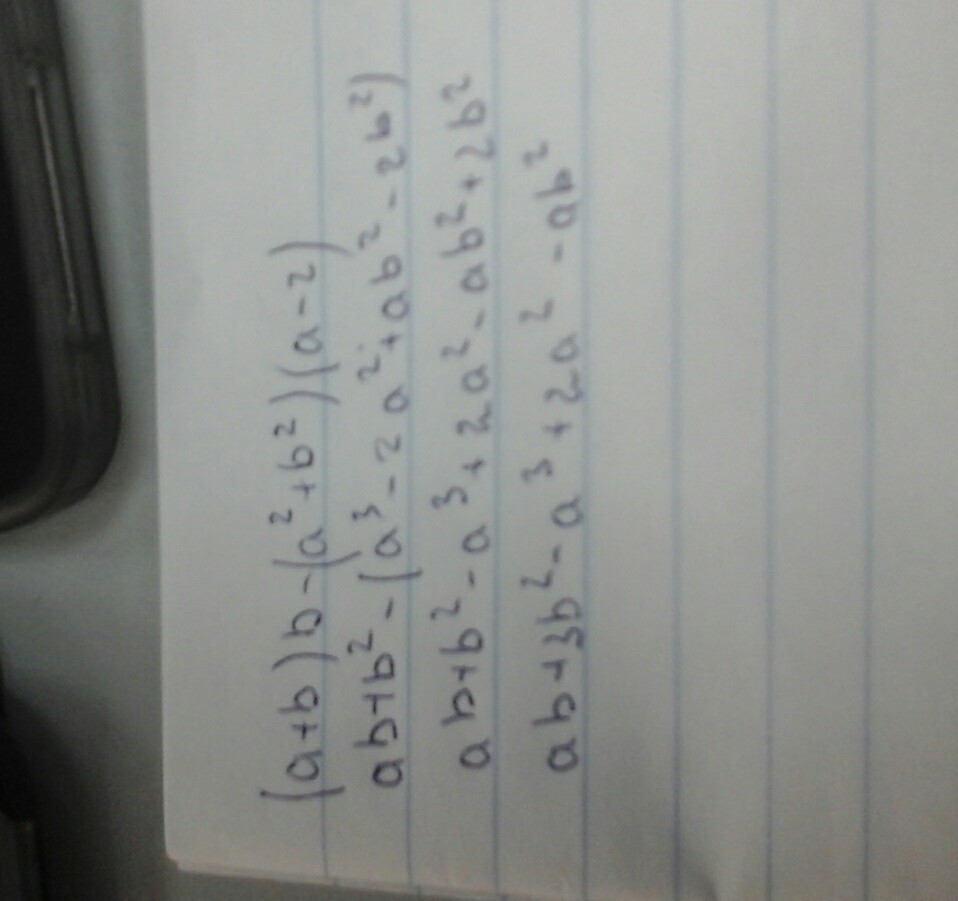 (a+b)b-(a²+b²)(a-2)
ab+b²-(a³-2a²+ab²-2b²)
ab+b²-a³+2a²-ab²+2b²
ab+3b²-a³+2a²-ab²